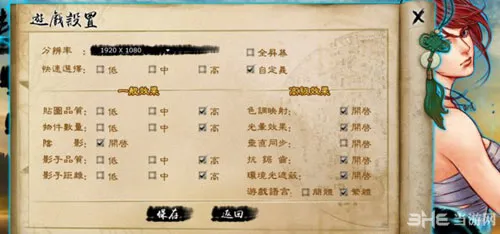 遊戲設置
X
分辨率: 1920 X 1080 全屏幕
快速選擇: 低 中 高 自定義
一般效果 高級效果
貼圖品質: 低 中 高 色調映射: 開啓
物件數量: 低 中 高 光暈效果: 開啓
陰 影: 開啓 垂直同步: 開啓
影子品質: 低 中 高 抗鋸齒: 開啓
影子距離: 低 中 高 環境光遮蔽: 開啓
遊戲語言: 簡體 繁體
保存 返回
3HE 当游网